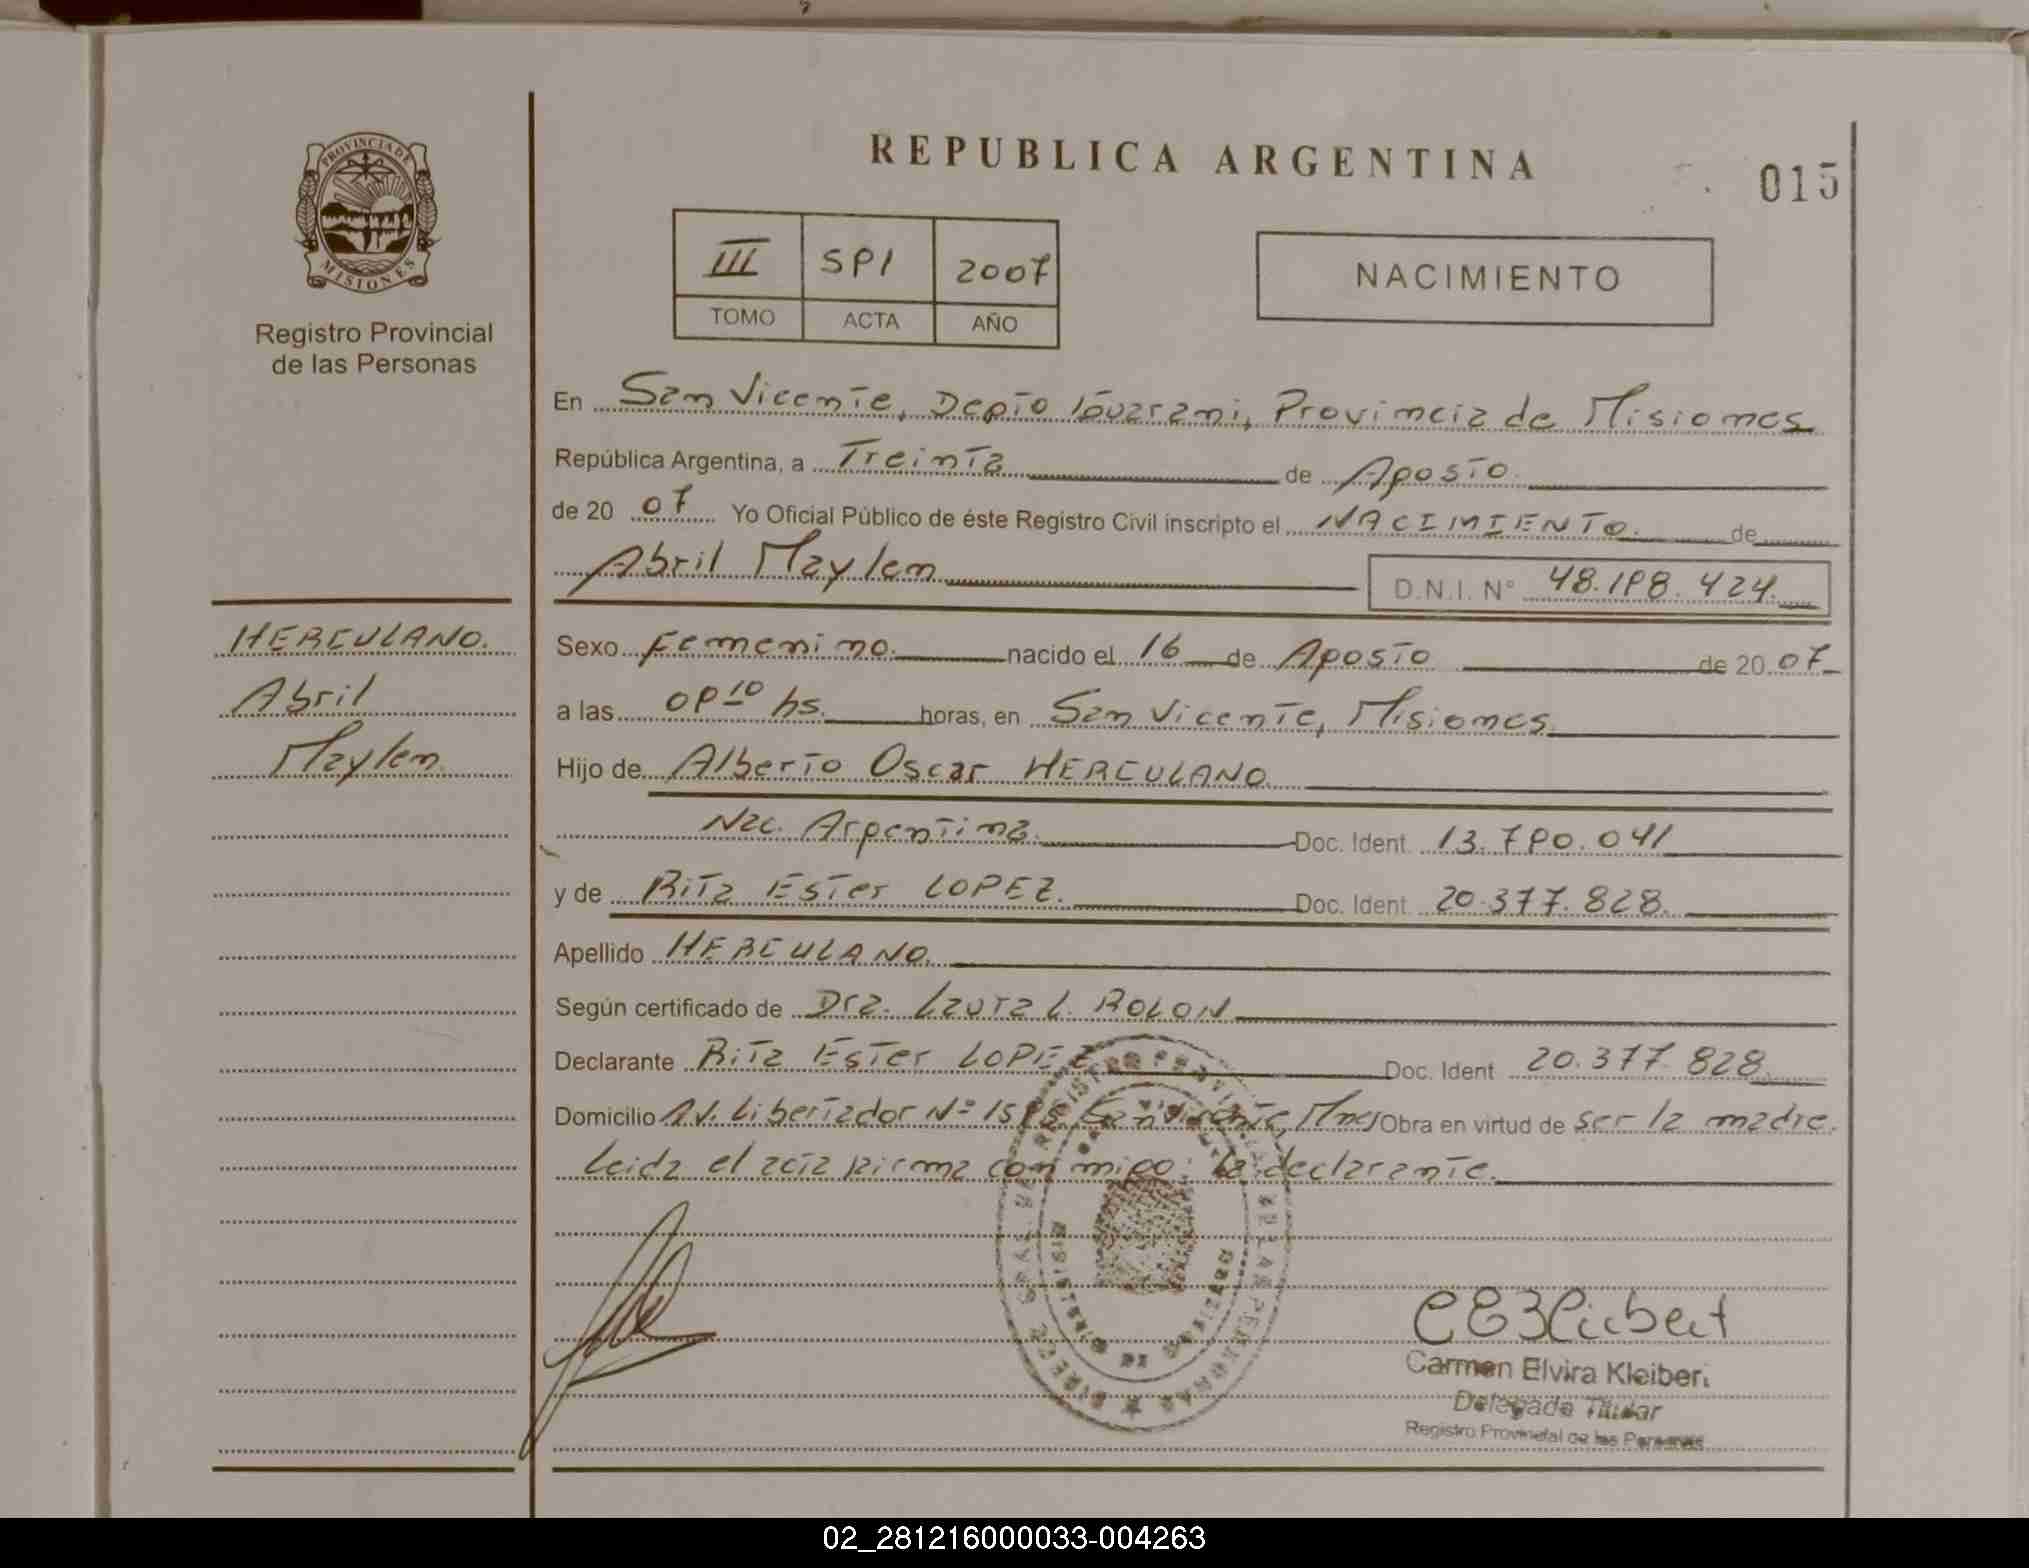 REPUBLICA ARGENTINA
015
PROVINCIA DE
MISIONES
Registro Provincial
de las Personas
III 2007
TOMO ACTA AÑO
NACIMIENTO
En San Vicente, Depto Guarani, Provincia de Misiones
República Argentina, a Treinta de Agosto.
de 20 07 Yo Oficial Público de éste Registro Civil inscripto el NACIMIENTO. de
Abril Maylen D.N.I. Nº 48.198.424.
HERCULANO.
Abril
Maylen
Sexo Femenino. nacido el 16 de Agosto de 20 07
a las 09 10 hs. horas, en San Vicente, Misiones.
Hijo de Alberto Oscar HERCULANO.
Nac. Argentina. Doc. Ident. 13.790.041
y de Rita Ester LOPEZ. Doc. Ident. 20.377.828.
Apellido HERCULANO.
Según certificado de Dra. Laura L. ROLON
Declarante Rita Ester LOPEZ Doc. Ident 20.377.828
Domicilio AV. Libertador Nº San Vicente, Mnes Obra en virtud de ser la madre.
Leida el acta firma conmigo: la declarante.
Carmen Elvira Kleiber
Delegada Titular
Registro Provincial de las Personas
02_281216000033-004263